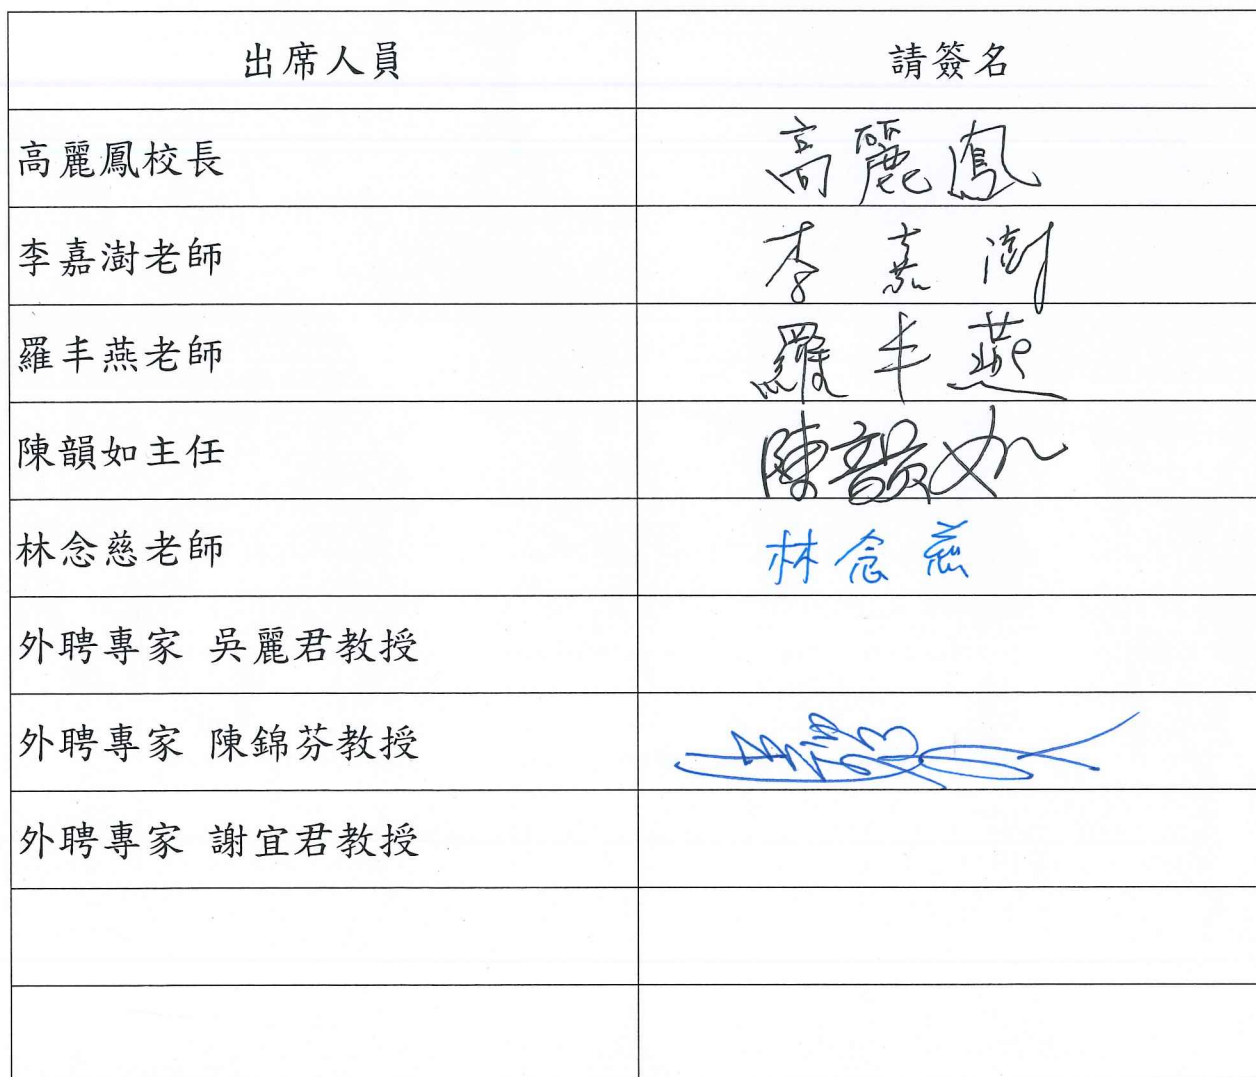 出席人員 請簽名
高麗鳳校長 高麗鳳
李嘉澍老師 李嘉澍
羅丰燕老師 羅丰燕
陳韻如主任 陳韻如
林念慈老師 林念慈
外聘專家 吳麗君教授
外聘專家 陳錦芬教授
外聘專家 謝宜君教授